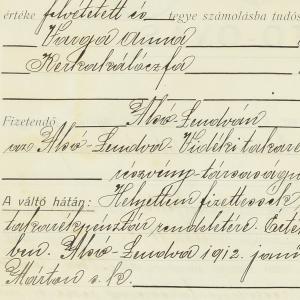 értéke felvétetett és tegye számolásba tudós
Varga Anna
Kerkakálóczfa
Fizetendő Alsó-Lendván
az Alsó-Lendva-Vidéki takaré
részvény-társaságn
A váltó hátán: Helyettem fizettessék
takarékpénztár rendeletére. Érte
ben. Alsó-Lendva 1912. janu
Márton s. k.